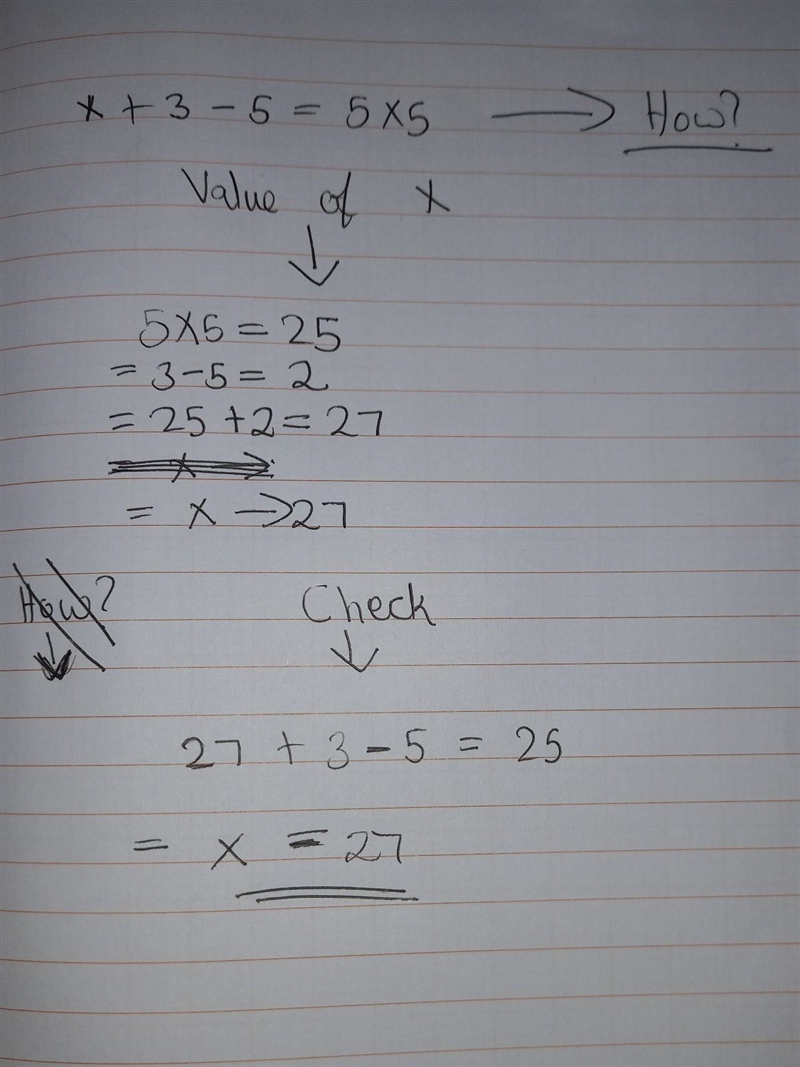 x + 3 - 5 = 5x5 → How?
Value of x
↓
5x5 = 25
= 3-5 = 2
= 25 + 2 = 27
x →
= x → 27
How? Check
↓ ↓
27 + 3 - 5 = 25
= x = 27